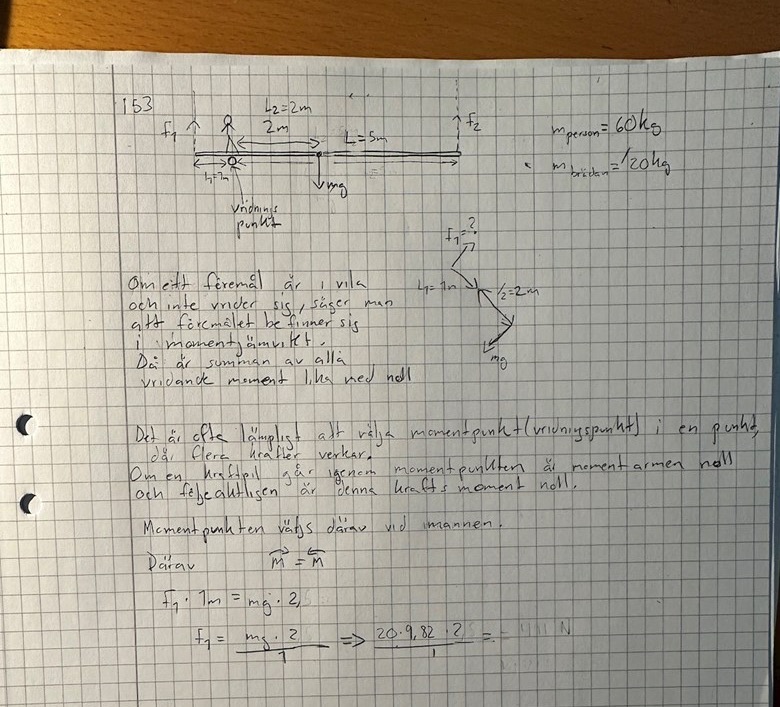 153
L₂=2m
2m
f₁
L=5m
f₂
L₁=1m
mg
vridnings
punkt
m person = 60kg
m brädan = 20kg
f₁=?
L₁=1m
L₂=2m
mg
Om ett föremål är i vila
och inte vrider sig, säger man
att föremålet befinner sig
i momentjämvikt.
Då är summan av alla
vridande moment lika med noll
Det är ofta lämpligt att välja momentpunkt (vridningspunkt) i en punkt,
där flera krafter verkar.
Om en kraftpil går igenom momentpunkten är momentarmen noll
och följaktligen är denna krafts moment noll.
Momentpunkten väljs därav vid mannen.
Därav M = M
f₁ · 1m = mg · 2,
f₁ = mg · 2 / 1 => 20 · 9,82 · 2 / 1 =